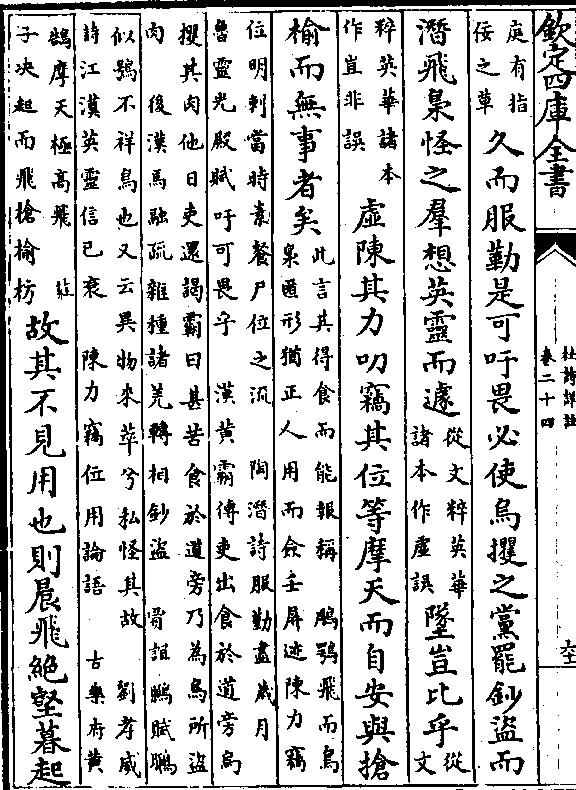 欽定四庫全書
杜詩詳註
卷二十四
庭有指
佞之草
久而服勤是可吁畏必使烏攫之黨罷鈔盜而
潛飛梟怪之羣想英靈而遽
從文粹英華
諸本作虛誤
墜豈比乎
從
文
粹英華諸本
作豈非誤
虛陳其力叨竊其位等摩天而自安與搶
榆而無事者矣
此言其得食而能報稱 鵰鶚飛而烏
梟匿形猶正人用而僉壬屏迹陳力竊
位明刺當時素餐尸位之流 陶潛詩服勤盡歲月
魯靈光殿賦吁可畏乎 漢黃霸傳吏出食於道旁烏
攫其肉他日吏還謁霸曰甚苦食於道旁乃為烏所盜
肉 後漢馬融疏雜種諸羌轉相鈔盜 賈誼鵩賦鵩
似鴞不祥鳥也又云異物來萃兮私怪其故 劉孝威
詩江漢英靈信已衰 陳力竊位用論語 古樂府黃
鵠摩天極高飛 莊
子决起而飛搶榆枋
故其不見用也則晨飛絕壑暮起